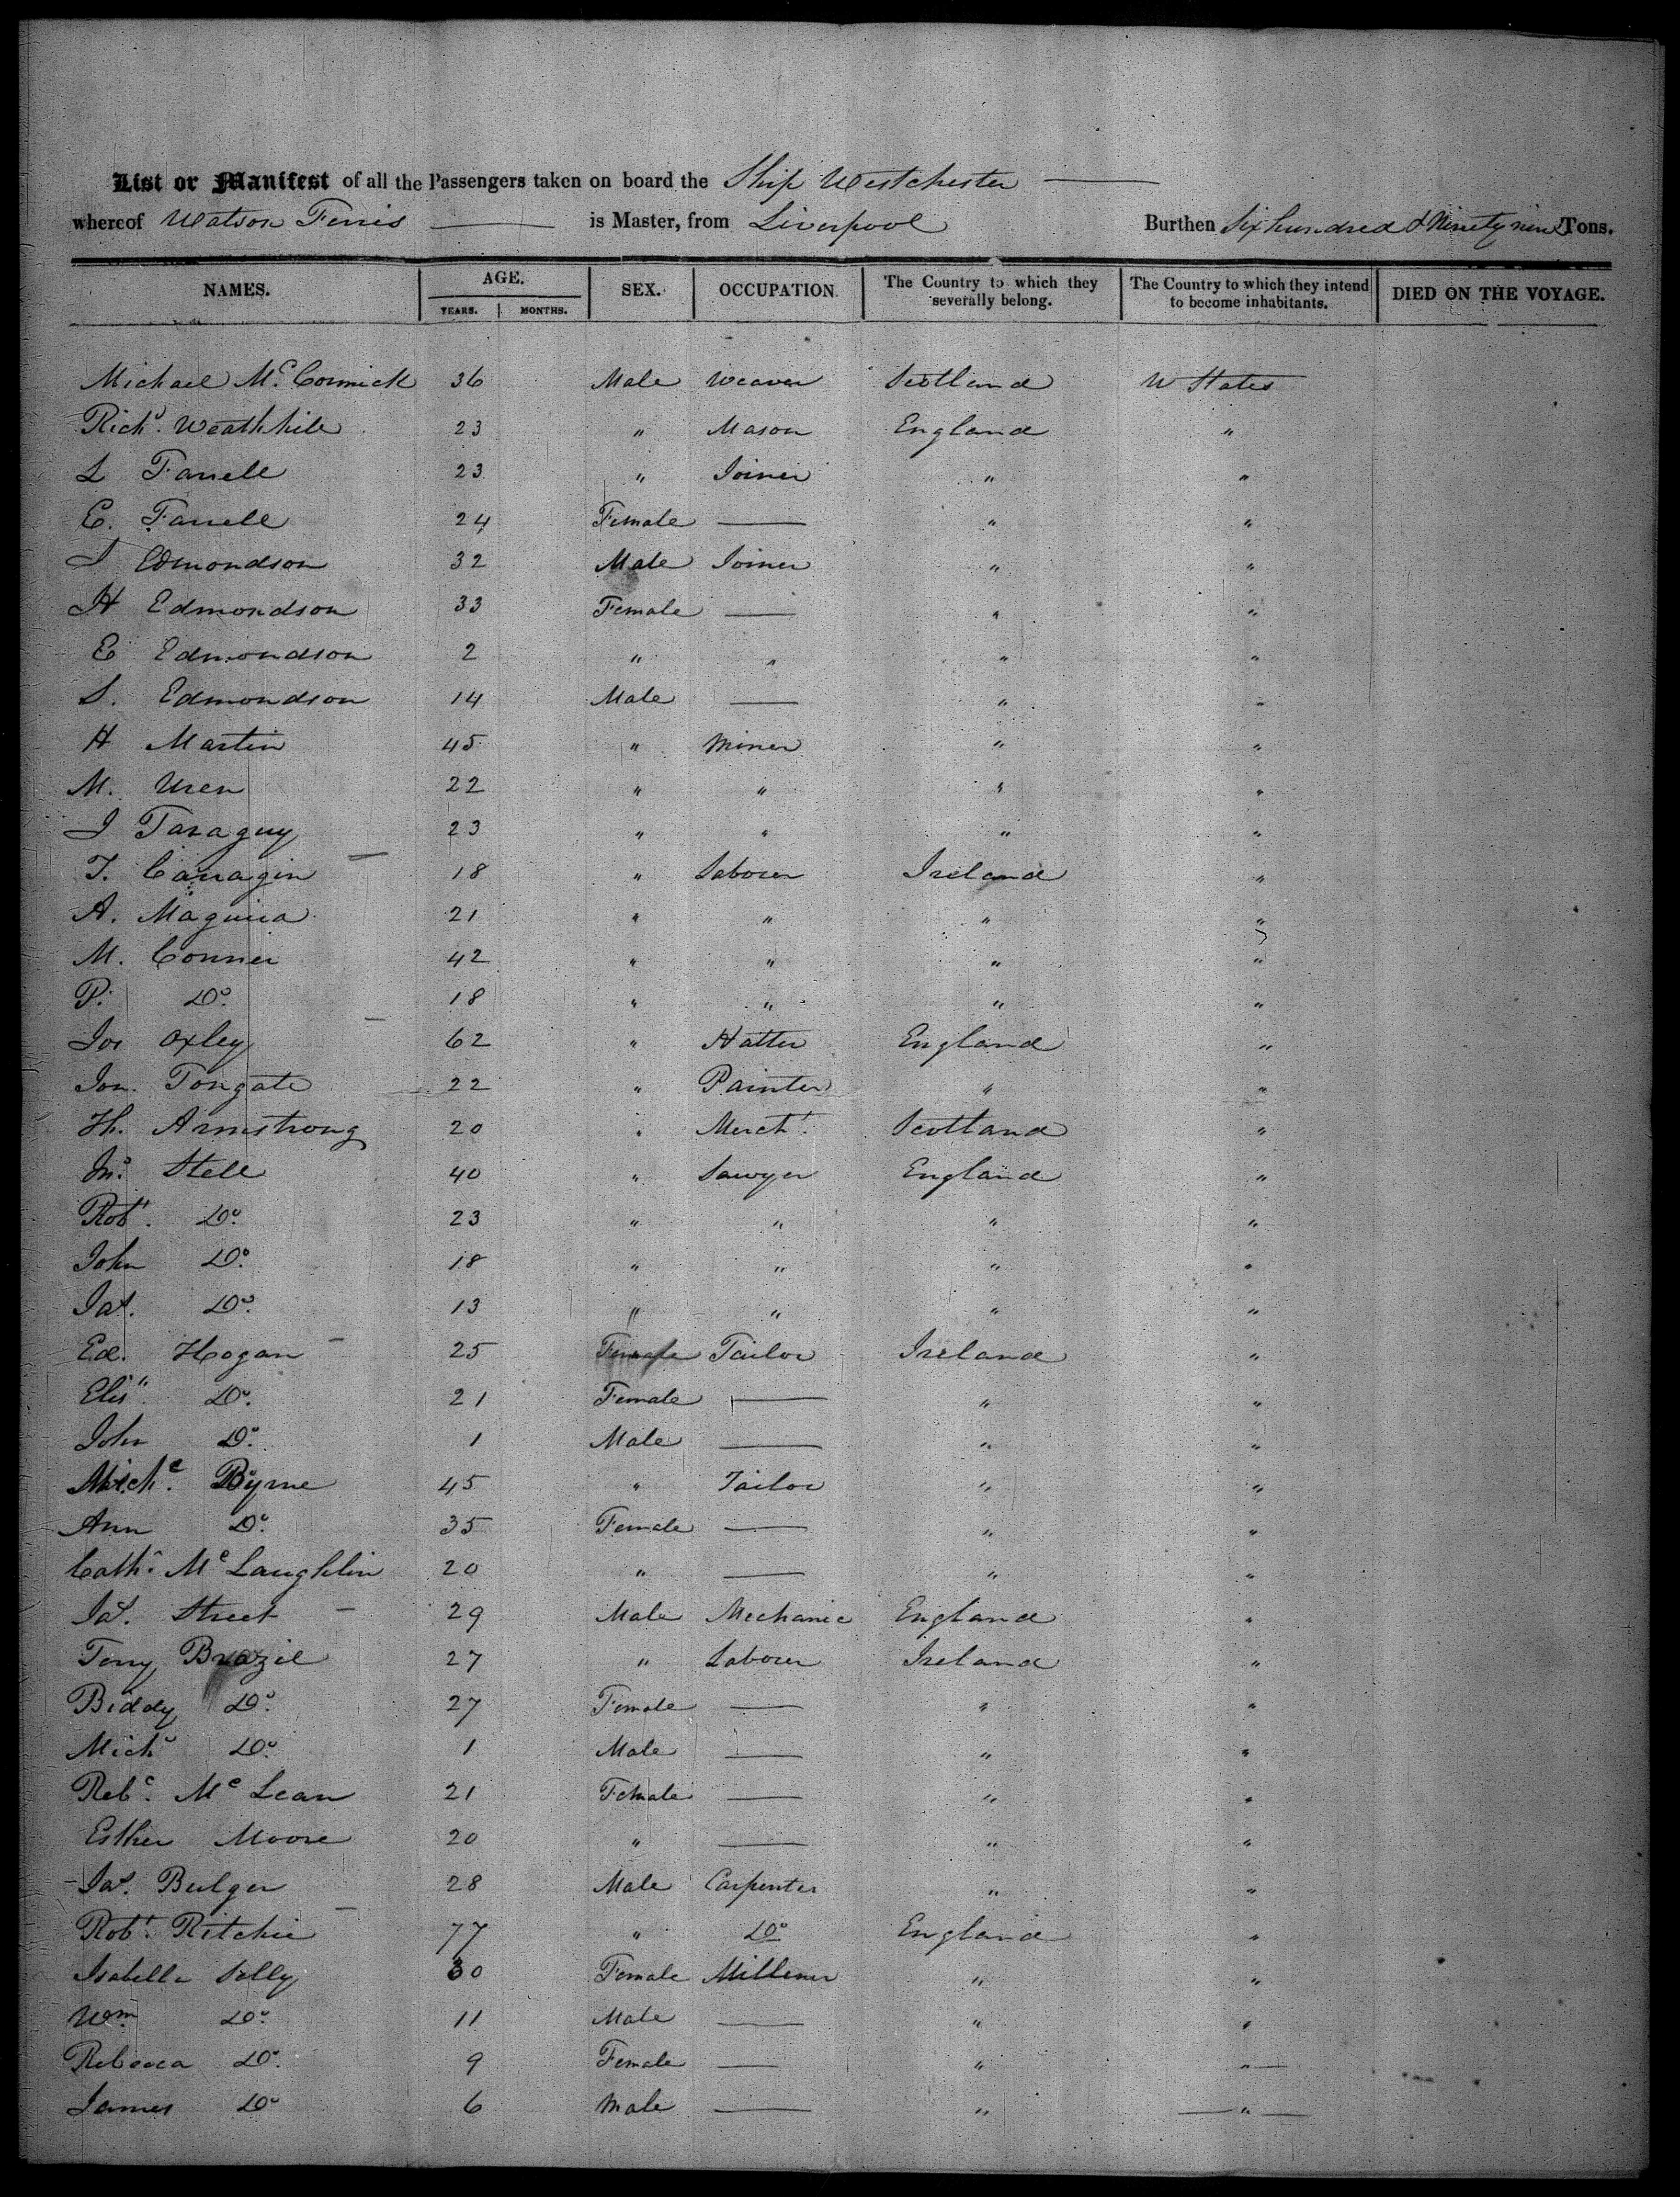 List or Manifest of all the Passengers taken on board the Ship Westchester
whereof Watson Ferris is Master, from Liverpool Burthen Six hundred & Ninety nine Tons.
NAMES. AGE. SEX. OCCUPATION. The Country to which they severally belong. The Country to which they intend to become inhabitants. DIED ON THE VOYAGE.
YEARS. MONTHS.
Michael McCormick 36 Male Weaver Scotland U States
Richd. Weathhill 23 " Mason England "
L Farrell 23 " Joiner " "
E. Farrell 24 Female — " "
J Edmondson 32 Male Joiner " "
H Edmondson 33 Female — " "
E Edmondson 2 " " " "
S. Edmondson 14 Male — " "
H Martin 45 " Miner " "
M. Uren 22 " " " "
J Taraguy 23 " " " "
T. Carragin 18 " Laborer Ireland "
A. Maguira 21 " " " "
M. Conner 42 " " " "
P. Do. 18 " " " "
Jos Oxley 62 " Hatter England "
Jon. Tongate 22 " Painter " "
Th. Armstrong 20 " Mercht. Scotland "
Jno. Stell 40 " Sawyer England "
Robt. Do. 23 " " " "
John Do. 18 " " " "
Jas. Do. 13 " " " "
Ed. Hogan 25 Female Tailor Ireland "
Elis". Do. 21 Female — " "
John Do. 1 Male — " "
Michl. Byrne 45 " Tailor " "
Ann Do. 35 Female — " "
Cath. McLaughlin 20 " — " "
Jas. Street 29 Male Mechanic England "
Terry Brazil 27 " Laborer Ireland "
Biddy Do. 27 Female — " "
Michl Do. 1 Male — " "
Rebc. McLean 21 Female — " "
Esther Moore 20 " — " "
Jas. Bulger 28 Male Carpenter " "
Robt. Ritchie 77 " Do England "
Isabella Selly 30 Female Millener " "
Wm. Do. 11 Male — " "
Rebecca Do. 9 Female — " "
James Do 6 Male — " "